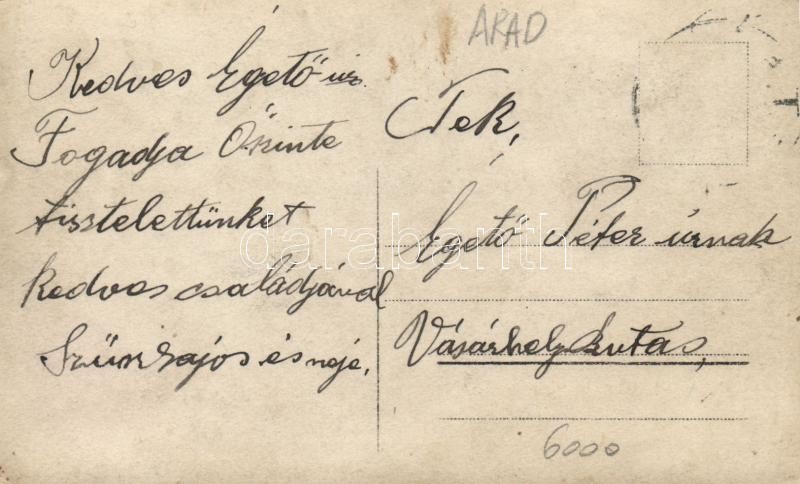 ARAD
Kedves Égető úr
Fogadja Őszinte
tisztelettünket
kedves családjával
és neje.
Tek,
Égető Péter úrnak
Vásárhelykutas,
6000
darabanth